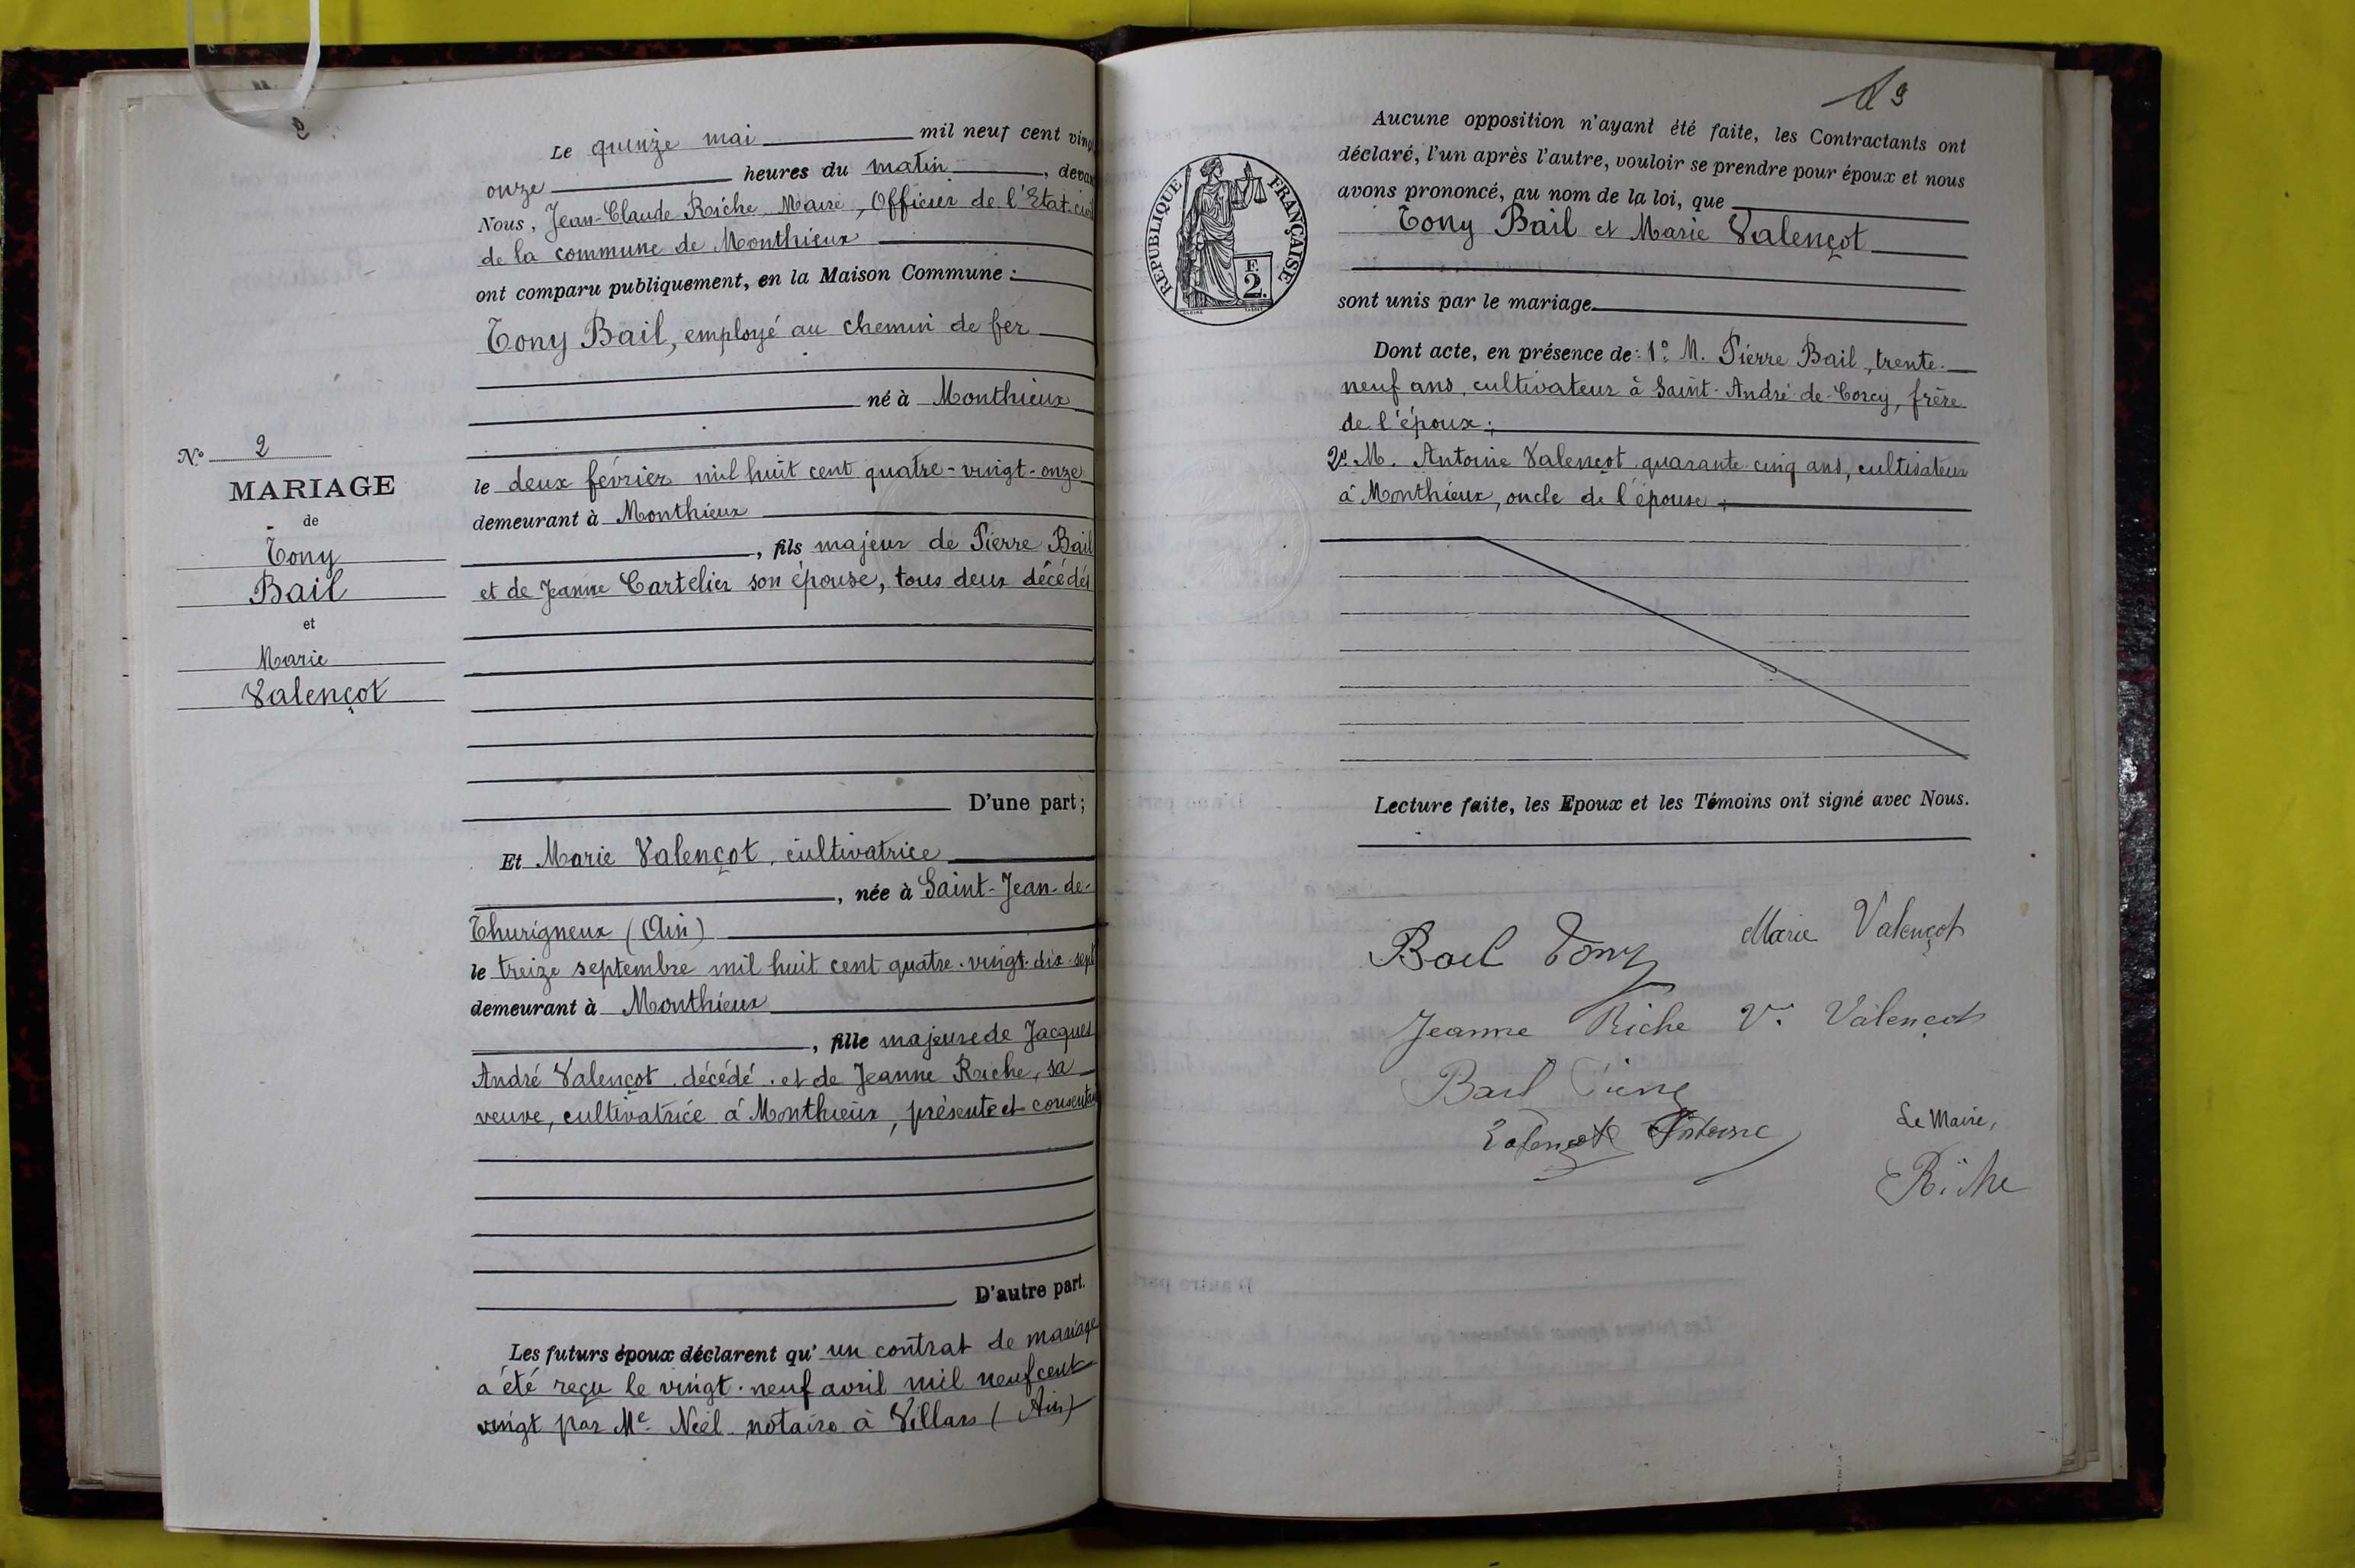 Le quinze mai mil neuf cent vingt
onze heures du matin, devant
Nous, Jean-Claude Riche, Maire, Officier de l'Etat-civil
de la commune de Monthieux
ont comparu publiquement, en la Maison Commune :
Tony Bail, employé au chemin de fer
né à Monthieux
le deux février mil huit cent quatre-vingt-onze
demeurant à Monthieux
, fils majeur de Pierre Bail
et de Jeanne Cartelier son épouse, tous deux décédés
D'une part;
Et Marie Valençot, cultivatrice
, née à Saint-Jean-de-
Thurigneux (Ain)
le treize septembre mil huit cent quatre-vingt-dix-sept
demeurant à Monthieux
, fille majeure de Jacques
André Valençot, décédé, et de Jeanne Riche, sa
veuve, cultivatrice à Monthieux, présente et consentante
D'autre part.
Les futurs époux déclarent qu'un contrat de mariage
a été reçu le vingt-neuf avril mil neuf cent
vingt par Me Noël notaire à Villars (Ain)
No 2
MARIAGE
de
Tony
Bail
et
Marie
Valençot
19
RÉPUBLIQUE FRANÇAISE
F.
2.
Aucune opposition n'ayant été faite, les Contractants ont
déclaré, l'un après l'autre, vouloir se prendre pour époux et nous
avons prononcé, au nom de la loi, que
Tony Bail et Marie Valençot
sont unis par le mariage.
Dont acte, en présence de : 1° M. Pierre Bail, trente-
neuf ans, cultivateur à Saint-André-de-Corcy, frère
de l'époux ;
2° M. Antoine Valençot, quarante-cinq ans, cultivateur
à Monthieux, oncle de l'épouse ;
Lecture faite, les Epoux et les Témoins ont signé avec Nous.
Bail Tony
Marie Valençot
Jeanne Riche Ve Valençot
Bail Pierre
Valençot Antoine
Le Maire,
Riche